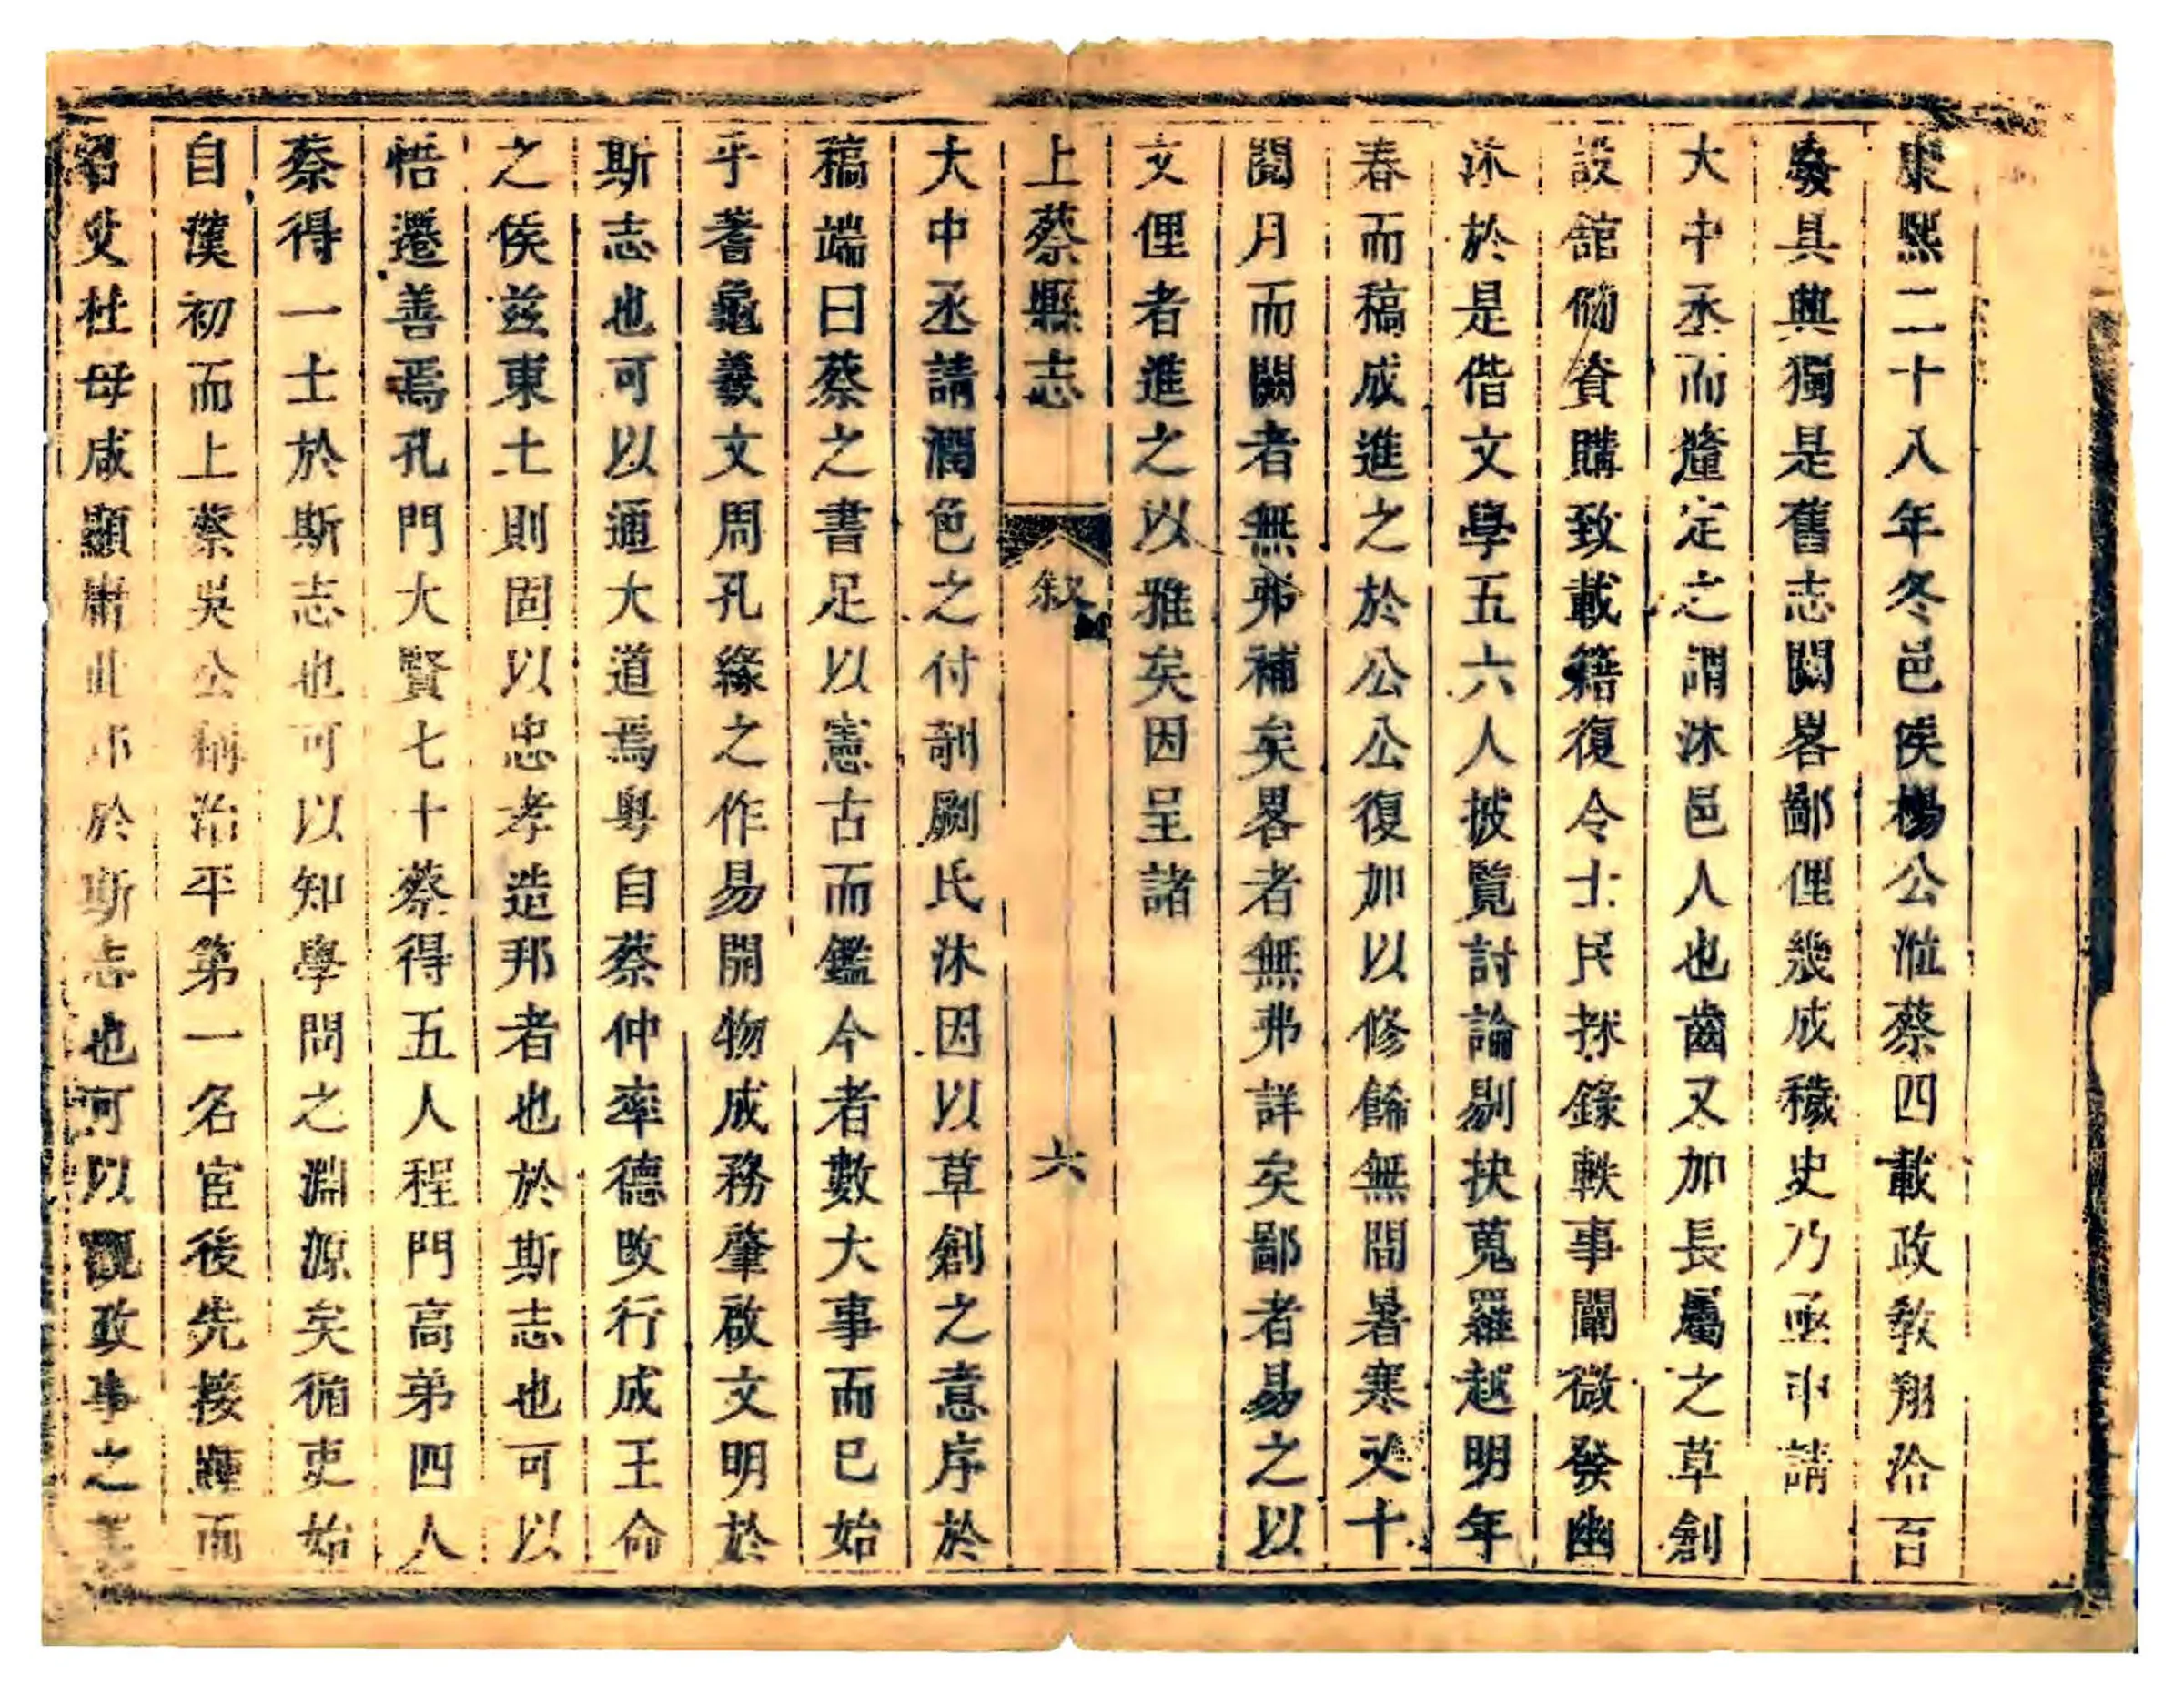 康熙二十八年冬邑侯楊公涖蔡四載政教翔洽百
廢具興獨是舊志闕畧鄙俚幾成穢史乃亟申請
大中丞而釐定之謂沐邑人也齒又加長屬之草創
設館俻資購致載籍復令士民採錄軼事闡微發幽
沐於是偕文學五六人披覽討論剔抉蒐羅越明年
春而稿成進之於公公復加以修餙無間暑寒又十
閱月而闕者無弗補矣畧者無弗詳矣鄙者易之以
文俚者進之以雅矣因呈諸
上蔡縣志
叙
六
大中丞請潤色之付剞劂氏沐因以草創之意序於
稿端曰蔡之書足以憲古而鑑今者數大事而已始
乎蓍龜羲文周孔緣之作易開物成務肇啟文明於
斯志也可以通大道焉粤自蔡仲率德改行成王命
之侯兹東土則固以忠孝造邦者也於斯志也可以
悟遷善焉孔門大賢七十蔡得五人程門高弟四人
蔡得一士於斯志也可以知學問之淵源矣循吏始
自漢初而上蔡吳公稱治平第一名宦後先接踵而
召父杜母咸顯庸此邦於斯志也可以觀政事之